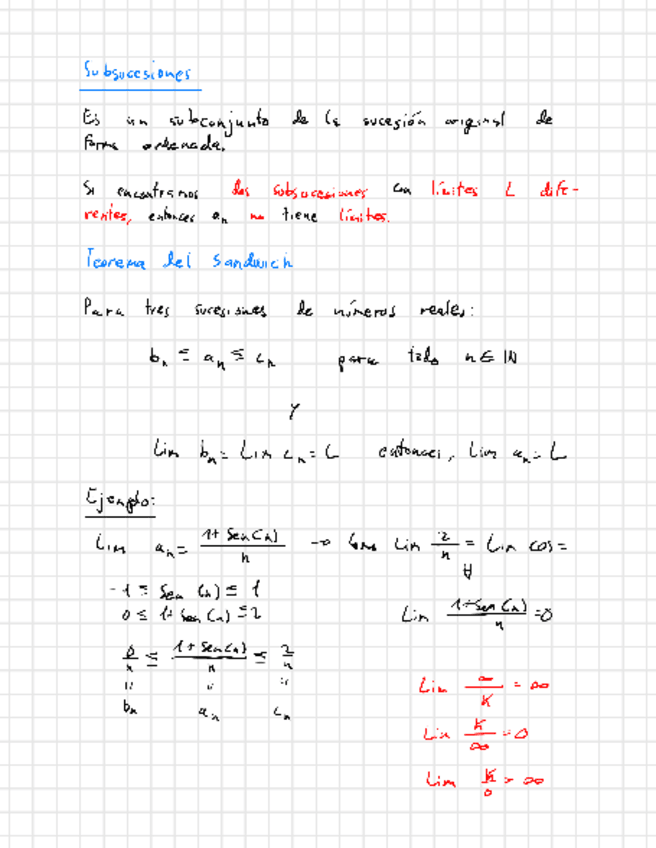 Subsucesiones
Es un subconjunto de la sucesión original de
forma ordenada.
Si encontramos dos subsucesiones con límites L dife-
rentes, entonces aₙ no tiene límites.
Teorema del Sandwich
Para tres sucesiones de números reales:
bₙ ≤ aₙ ≤ cₙ para todo n ∈ ℕ
y
Lim bₙ = Lim cₙ = L entonces, Lim aₙ = L
Ejemplo:
Lim aₙ = (1 + Sen(n)) / n → Como Lim 2/n = Lim
-1 ≤ Sen(n) ≤ 1
0 ≤ 1 + Sen(n) ≤ 2
Lim (1 + Sen(n)) / n = 0
0/n ≤ (1 + Sen(n)) / n ≤ 2/n
" " "
bₙ aₙ cₙ
Lim ∞/K = ∞
Lim K/∞ = 0
Lim K/0 = ∞